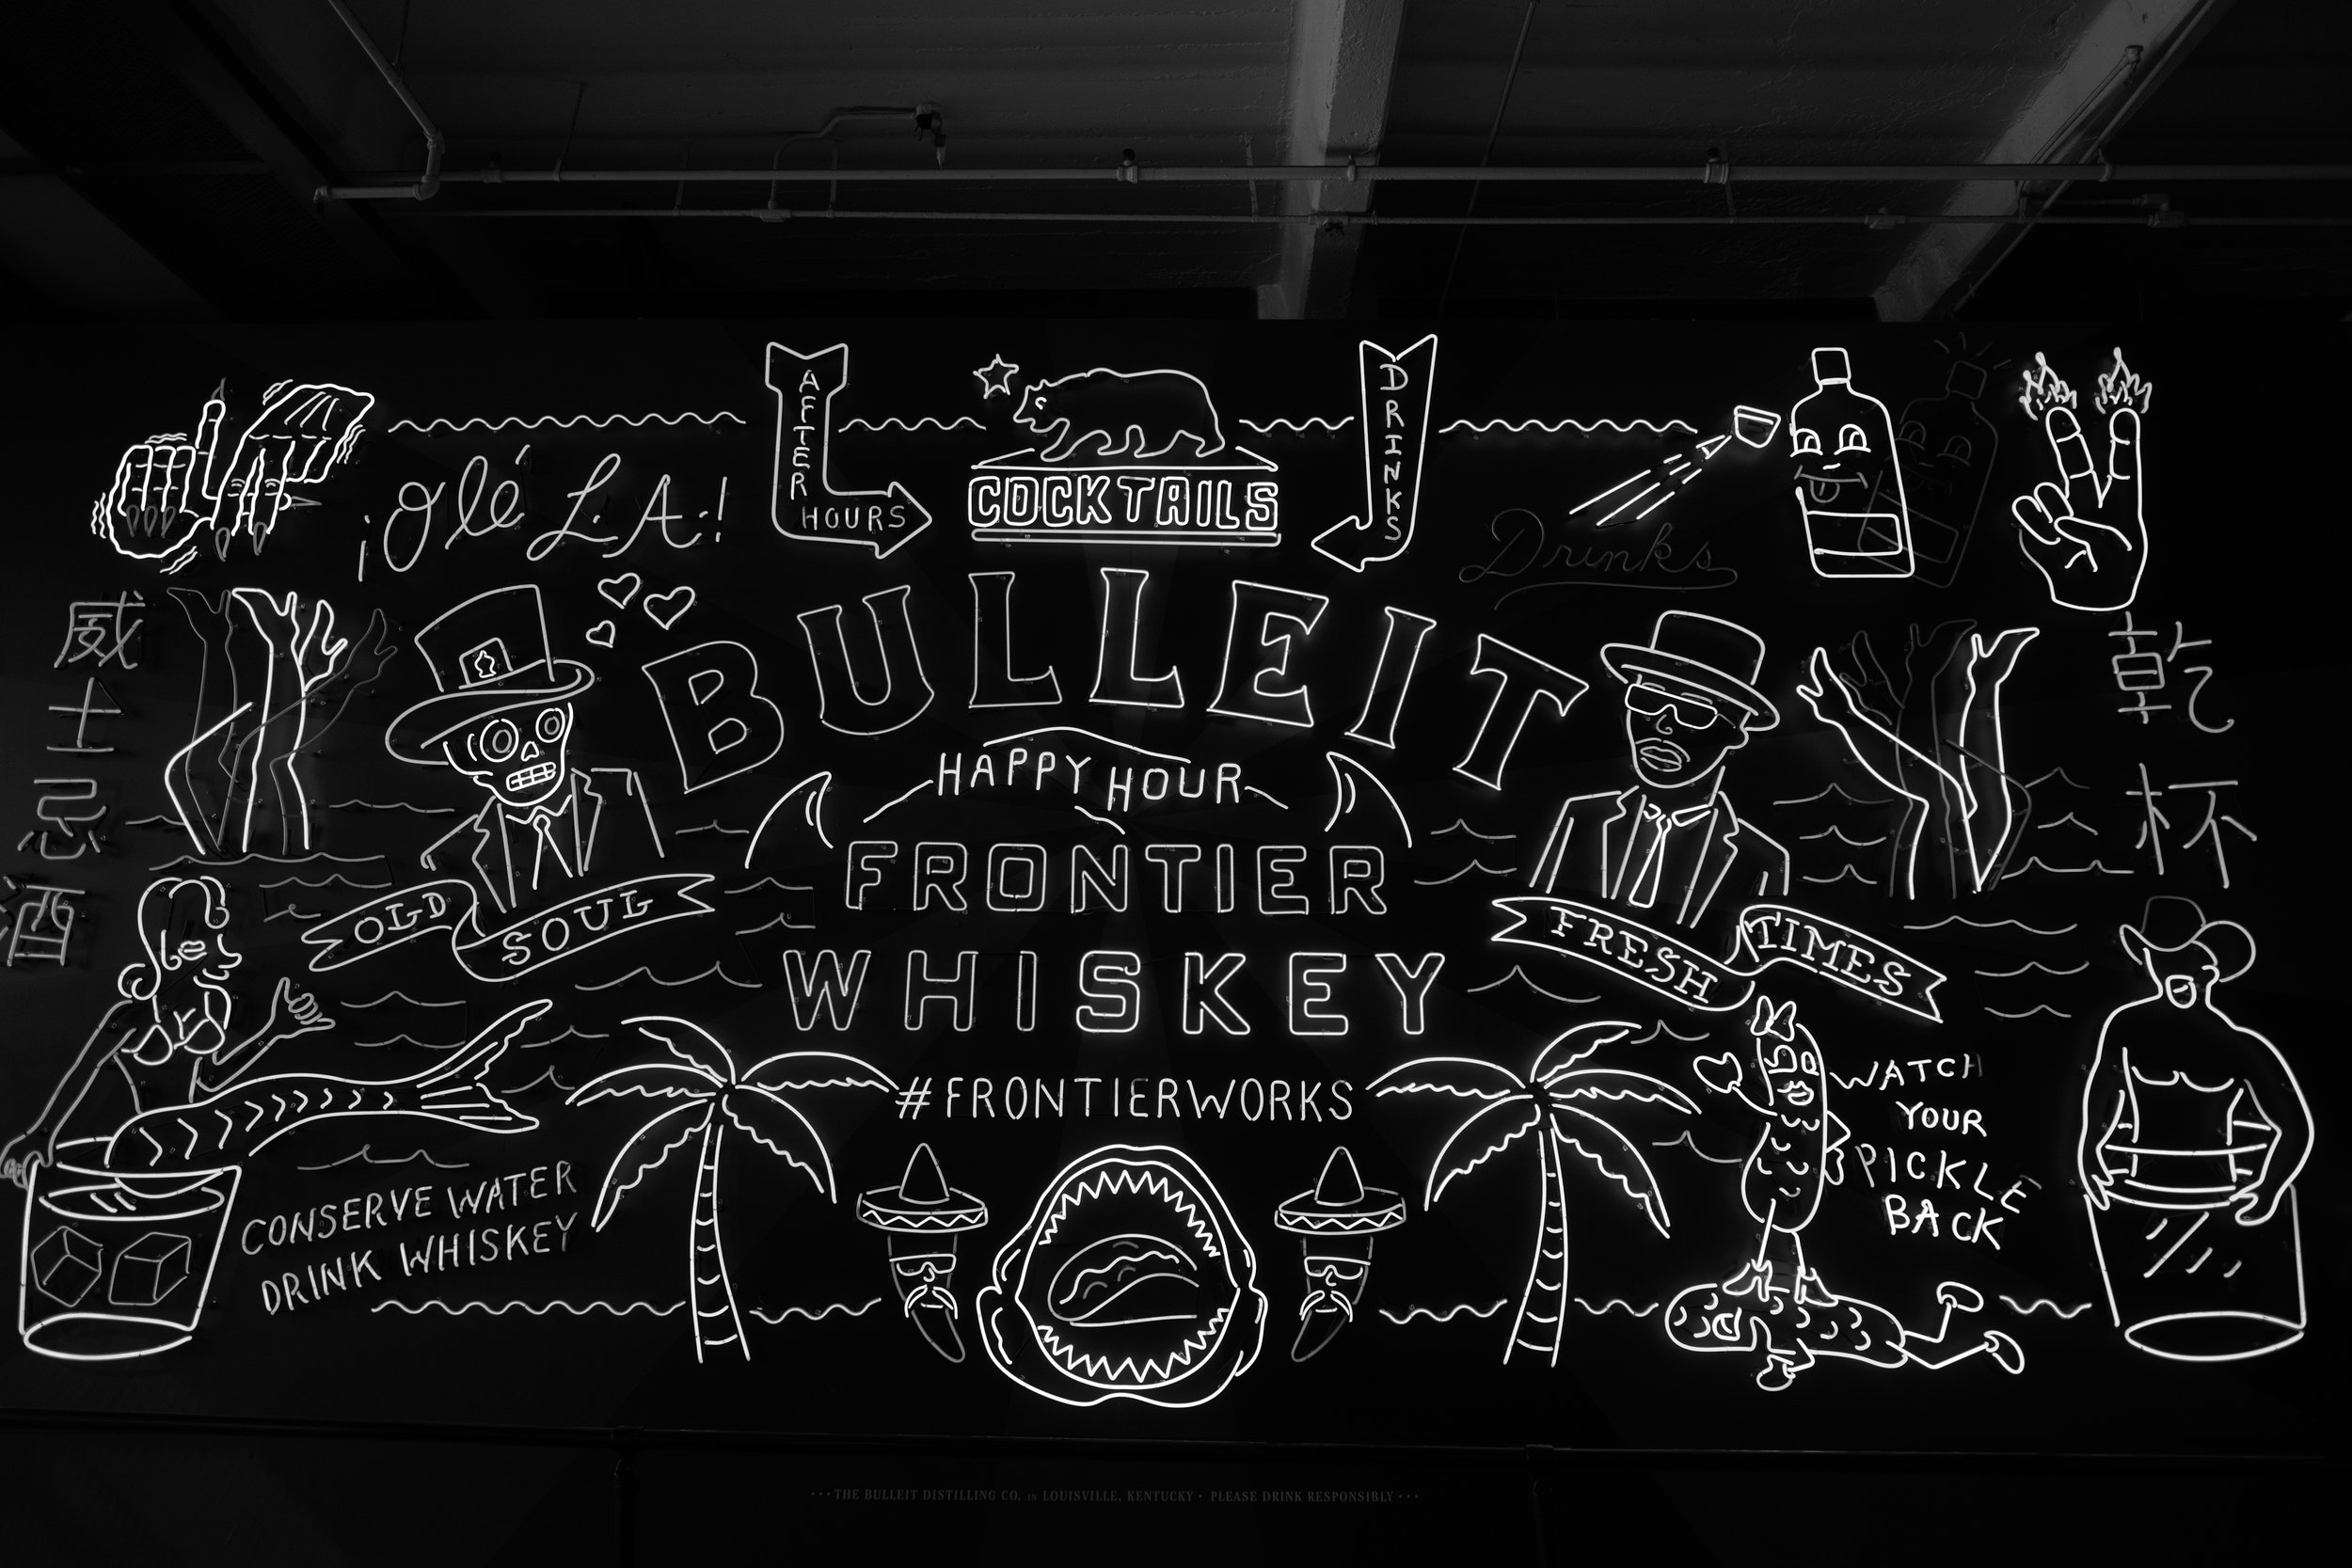 ¡Olé L.A.!
AFTER
HOURS
COCKTAILS
DRINKS
Drinks
威士忌酒
BULLEIT
乾杯
HAPPY HOUR
FRONTIER
WHISKEY
OLD SOUL
FRESH TIMES
#FRONTIERWORKS
CONSERVE WATER
DRINK WHISKEY
WATCH
YOUR
PICKLE
BACK
••• THE BULLEIT DISTILLING CO. IN LOUISVILLE, KENTUCKY • PLEASE DRINK RESPONSIBLY •••